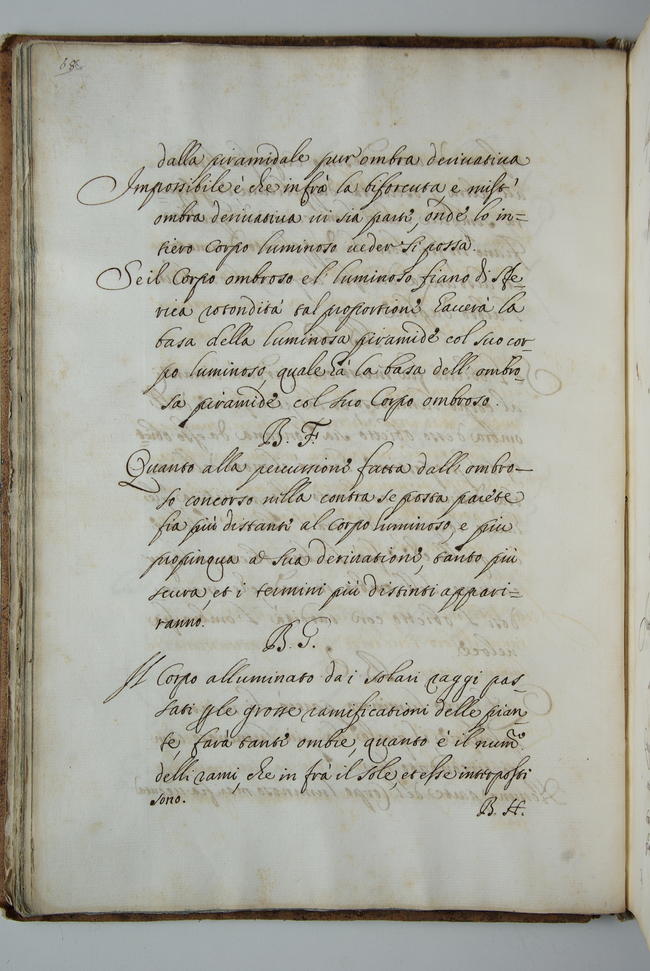 68.
dalla piramidale pur' ombra derivativa
Impossibile è che infrà la biforcuta, e mist'
ombra derivativa vi sia parte, onde lo in=
tiero Corpo luminoso veder' si possa.
Se il Corpo ombroso e l' luminoso fiano di sfe=
rica rotondità tal proportione haverà la
basa della luminosa piramide col suo cor=
po luminoso, quale hà la basa dell' ombro=
sa piramide col suo Corpo ombroso.
B. F.
Quanto alla percussione fatta dall' ombro=
so concorso nella contra se posta pariete
fia più distante al corpo luminoso, e più
propinqua a sua derivatione, tanto più
scura, et i termini più distinti appari=
ranno.
B. G.
Il Corpo alluminato da i solari raggi pas=
sati p le grosse ramificationi delle pian=
te, farà tante ombre, quanto è il num.
delli rami, che in frà il sole, et esse interposti
sono.
B. H.